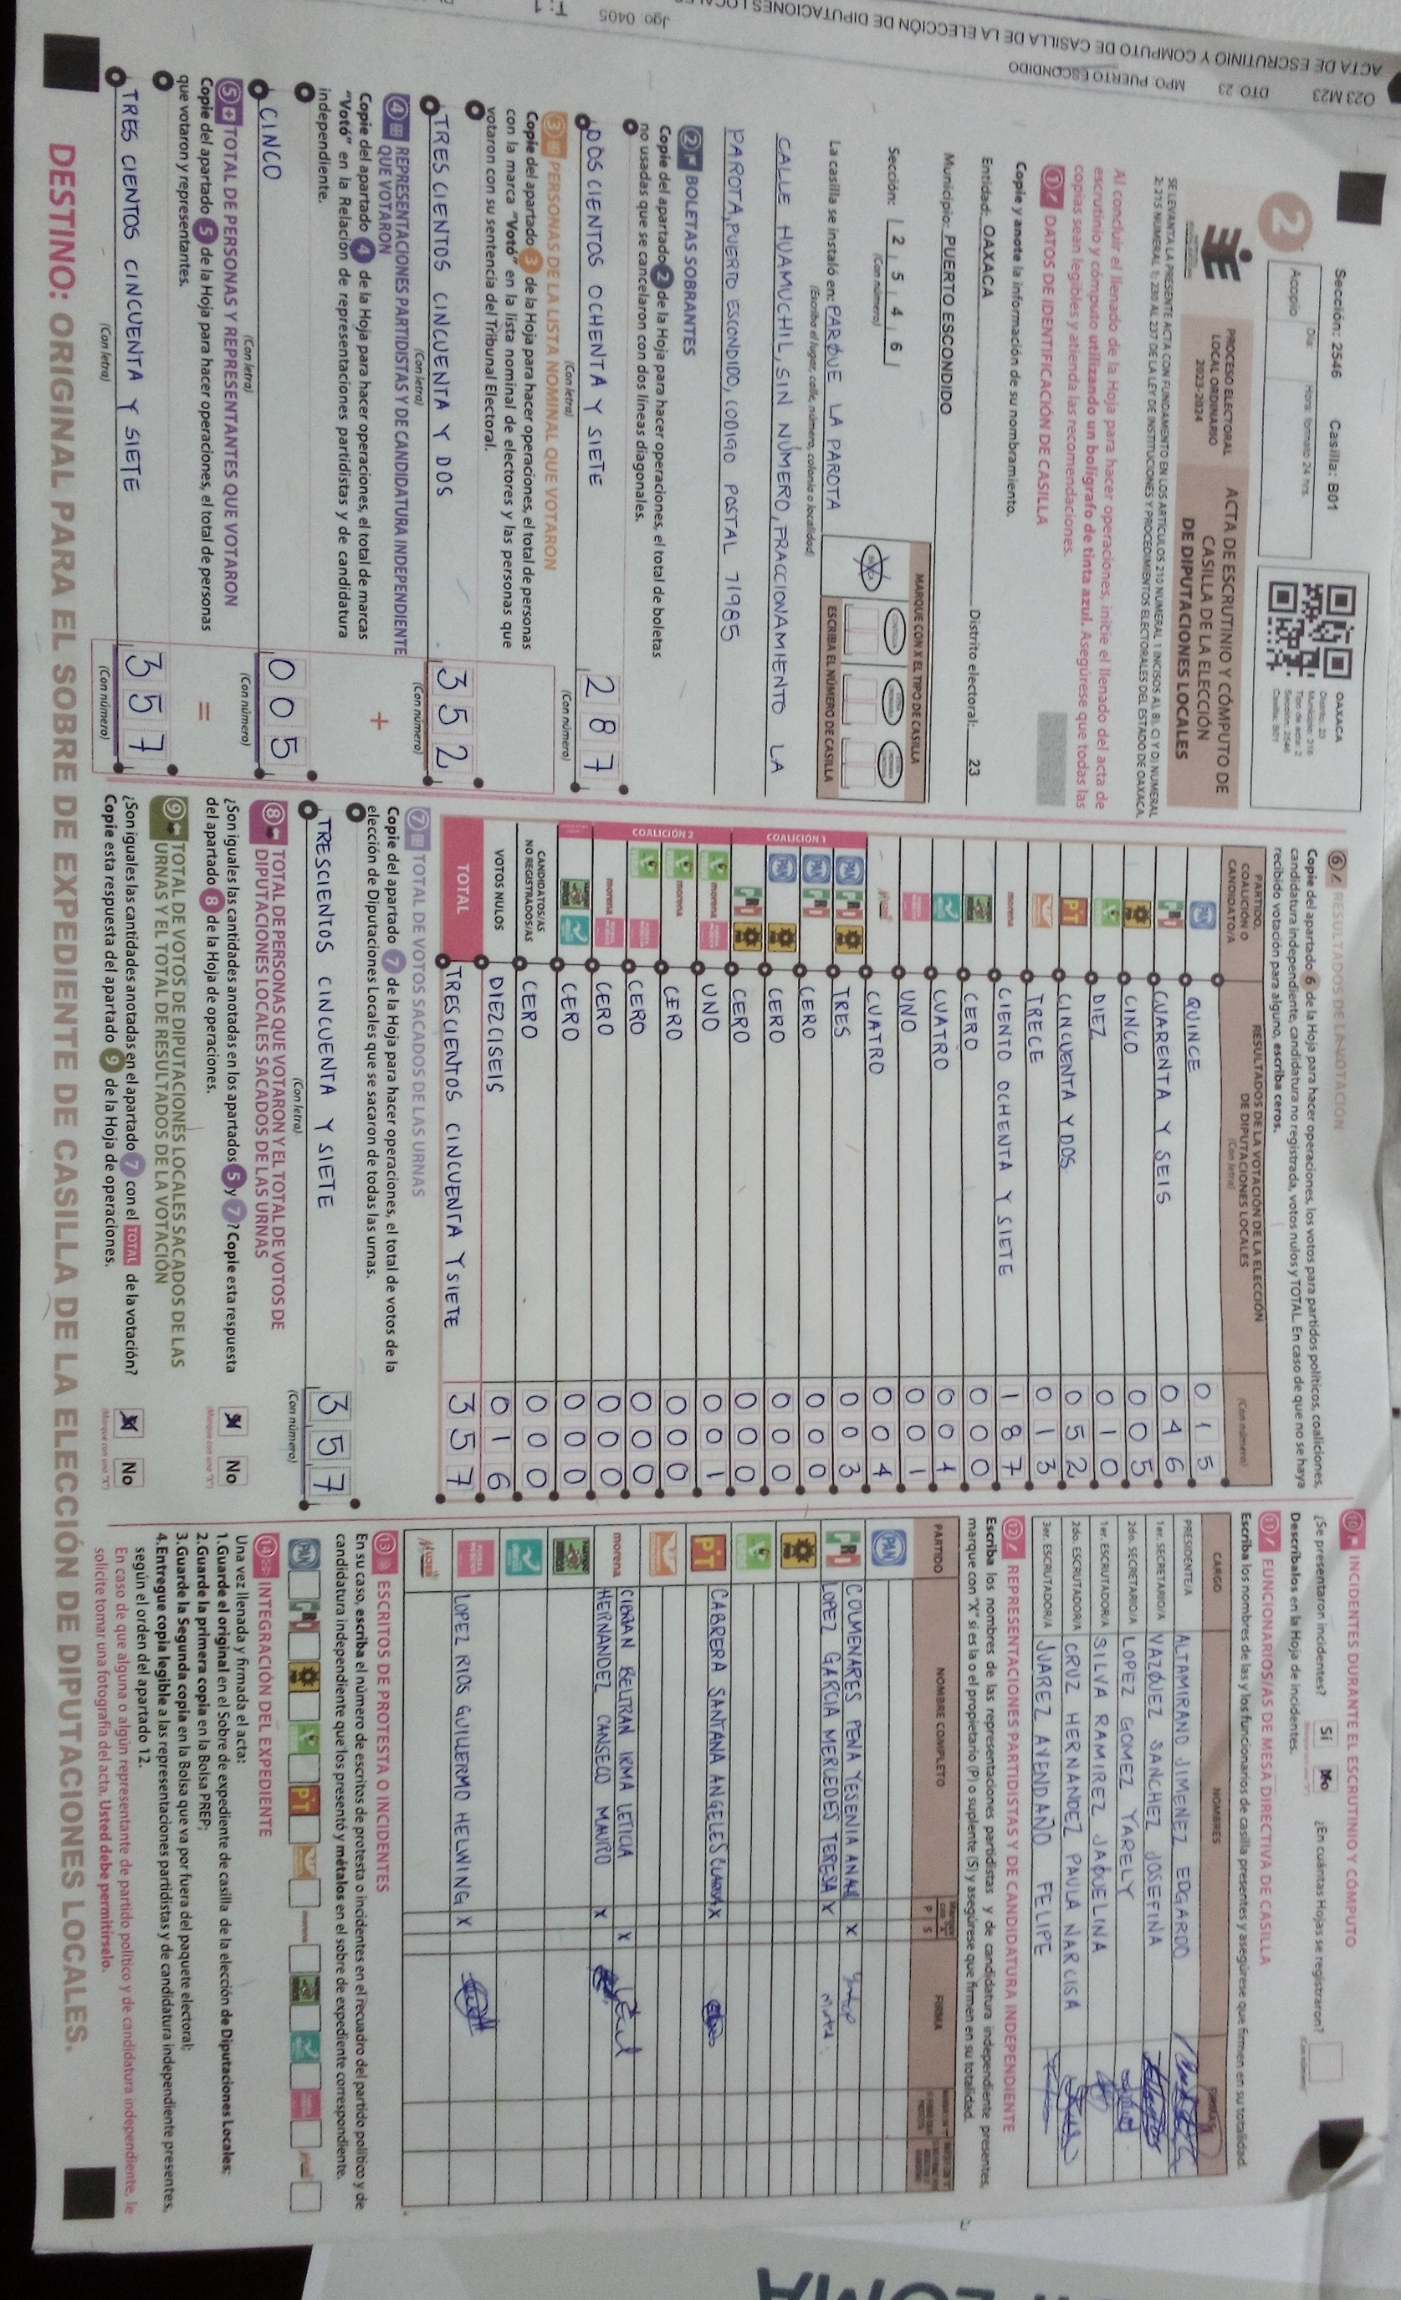 Sección: 2546 Casilla: B01
2
Acopio
Día:
Hora: formato 24 hrs.
OAXACA
PROCESO ELECTORAL
LOCAL ORDINARIO
2023-2024
ACTA DE ESCRUTINIO Y CÓMPUTO DE
CASILLA DE LA ELECCIÓN
DE DIPUTACIONES LOCALES
SE LEVANTA LA PRESENTE ACTA CON FUNDAMENTO EN LOS ARTÍCULOS 210 NUMERAL 1 INCISOS A), B), C) Y D); NUMERAL
2; 215 NUMERAL 1; 230 AL 237 DE LA LEY DE INSTITUCIONES Y PROCEDIMIENTOS ELECTORALES DEL ESTADO DE OAXACA.
Al concluir el llenado de la Hoja para hacer operaciones, inicie el llenado del acta de
escrutinio y cómputo utilizando un bolígrafo de tinta azul. Asegúrese que todas las
copias sean legibles y atienda las recomendaciones.
1 DATOS DE IDENTIFICACIÓN DE CASILLA
Copie y anote la información de su nombramiento.
Entidad: OAXACA Distrito electoral: 23
Municipio: PUERTO ESCONDIDO
Sección: 2 5 4 6
(Con número)
MARQUE CON X EL TIPO DE CASILLA
ESCRIBA EL NÚMERO DE CASILLA
La casilla se instaló en: PARQUE LA PAROTA
(Escriba el lugar, calle, número, colonia o localidad)
CALLE HUAMUCHIL, SIN NÚMERO, FRACCIONAMIENTO LA
PAROTA, PUERTO ESCONDIDO, CODIGO POSTAL 71985
2 BOLETAS SOBRANTES
Copie del apartado 2 de la Hoja para hacer operaciones, el total de boletas
no usadas que se cancelaron con dos líneas diagonales.
DOS CIENTOS OCHENTA Y SIETE 2 8 7
(Con letra) (Con número)
3 PERSONAS DE LA LISTA NOMINAL QUE VOTARON
Copie del apartado 3 de la Hoja para hacer operaciones, el total de personas
con la marca "Votó" en la lista nominal de electores y las personas que
votaron con su sentencia del Tribunal Electoral.
TRES CIENTOS CINCUENTA Y DOS 3 5 2
(Con letra) (Con número)
4 REPRESENTACIONES PARTIDISTAS Y DE CANDIDATURA INDEPENDIENTE
QUE VOTARON
Copie del apartado 4 de la Hoja para hacer operaciones, el total de marcas
"Votó" en la Relación de representaciones partidistas y de candidatura
independiente.
+
CINCO 0 0 5
(Con letra) (Con número)
5 TOTAL DE PERSONAS Y REPRESENTANTES QUE VOTARON
Copie del apartado 5 de la Hoja para hacer operaciones, el total de personas
que votaron y representantes.
=
TRES CIENTOS CINCUENTA Y SIETE 3 5 7
(Con letra) (Con número)
6 RESULTADOS DE LA VOTACIÓN
Copie del apartado 6 de la Hoja para hacer operaciones, los votos para partidos políticos, coaliciones,
candidatura independiente, candidatura no registrada, votos nulos y TOTAL. En caso de que no se haya
recibido votación para alguno, escriba ceros.
PARTIDO,
COALICIÓN O
CANDIDATO/A
RESULTADOS DE LA VOTACIÓN DE LA ELECCIÓN
DE DIPUTACIONES LOCALES
(Con letra) (Con número)
PAN QUINCE 0 1 5
PRI CUARENTA Y SEIS 0 4 6
CINCO 0 0 5
DIEZ 0 1 0
PT CINCUENTA Y DOS 0 5 2
TRECE 0 1 3
morena CIENTO OCHENTA Y SIETE 1 8 7
CERO 0 0 0
CUATRO 0 0 4
UNO 0 0 1
CUATRO 0 0 4
COALICIÓN 1
PAN PRI TRES 0 0 3
PAN PRI CERO 0 0 0
PAN CERO 0 0 0
PRI CERO 0 0 0
COALICIÓN 2
morena UNO 0 0 1
morena CERO 0 0 0
CERO 0 0 0
morena CERO 0 0 0
CERO 0 0 0
CANDIDATOS/AS
NO REGISTRADOS/AS CERO 0 0 0
VOTOS NULOS DIEZ CISEIS 0 1 6
TOTAL TRES CIENTOS CINCUENTA Y SIETE 3 5 7
7 TOTAL DE VOTOS SACADOS DE LAS URNAS
Copie del apartado 7 de la Hoja para hacer operaciones, el total de votos de la
elección de Diputaciones Locales que se sacaron de todas las urnas.
TRESCIENTOS CINCUENTA Y SIETE 3 5 7
(Con letra) (Con número)
8 TOTAL DE PERSONAS QUE VOTARON Y EL TOTAL DE VOTOS DE
DIPUTACIONES LOCALES SACADOS DE LAS URNAS
¿Son iguales las cantidades anotadas en los apartados 5 y 7? Copie esta respuesta
del apartado 8 de la Hoja de operaciones.
Sí No
9 TOTAL DE VOTOS DE DIPUTACIONES LOCALES SACADOS DE LAS
URNAS Y EL TOTAL DE RESULTADOS DE LA VOTACIÓN
¿Son iguales las cantidades anotadas en el apartado 7 con el TOTAL de la votación?
Copie esta respuesta del apartado 9 de la Hoja de operaciones.
Sí No
10 INCIDENTES DURANTE EL ESCRUTINIO Y CÓMPUTO
¿Se presentaron incidentes? Sí No ¿En cuántas Hojas se registraron?
Descríbalos en la Hoja de incidentes.
11 FUNCIONARIOS/AS DE MESA DIRECTIVA DE CASILLA
Escriba los nombres de las y los funcionarios de casilla presentes y asegúrese que firmen en su totalidad.
CARGO NOMBRES FIRMAS
PRESIDENTE/A ALTAMIRANO JIMENEZ EDGARDO
1er. SECRETARIO/A VAZQUEZ SANCHEZ JOSEFINA
2do. SECRETARIO/A LOPEZ GOMEZ YARELY
1er. ESCRUTADOR/A SILVA RAMIREZ JAQUELINA
2do. ESCRUTADOR/A CRUZ HERNANDEZ PAULA NARCISA
3er. ESCRUTADOR/A JUAREZ AVENDAÑO FELIPE
12 REPRESENTACIONES PARTIDISTAS Y DE CANDIDATURA INDEPENDIENTE
Escriba los nombres de las representaciones partidistas y de candidatura independiente presentes,
marque con "X" si es la o el propietario (P) o suplente (S) y asegúrese que firmen en su totalidad.
PARTIDO NOMBRE COMPLETO P S FIRMA
PAN
PRI COLMENARES PEÑA YESENIA ANAHI X
LOPEZ GARCIA MERCEDES TERESA X
PT CABRERA SANTANA ANGELES X
morena CIBRIAN BELTRAN IRMA LETICIA X
HERNANDEZ CANSECO MAURO X
LOPEZ RIOS GUILLERMO HELWING X
13 ESCRITOS DE PROTESTA O INCIDENTES
En su caso, escriba el número de escritos de protesta o incidentes en el recuadro del partido político y de
candidatura independiente que los presentó y métalos en el sobre de expediente correspondiente.
PAN PRI PT morena
14 INTEGRACIÓN DEL EXPEDIENTE
Una vez llenada y firmada el acta:
1.Guarde el original en el Sobre de expediente de casilla de la elección de Diputaciones Locales;
2.Guarde la primera copia en la Bolsa PREP;
3.Guarde la Segunda copia en la Bolsa que va por fuera del paquete electoral;
4.Entregue copia legible a las representaciones partidistas y de candidatura independiente presentes,
según el orden del apartado 12.
En caso de que alguna o algún representante de partido político y de candidatura independiente, le
solicite tomar una fotografía del acta. Usted debe permitírselo.
DESTINO: ORIGINAL PARA EL SOBRE DE EXPEDIENTE DE CASILLA DE LA ELECCIÓN DE DIPUTACIONES LOCALES.
O23 M23 DTO 23 MPO. PUERTO ESCONDIDO
ACTA DE ESCRUTINIO Y COMPUTO DE CASILLA DE LA ELECCIÓN DE DIPUTACIONES LOCALES
Jgo. 0405